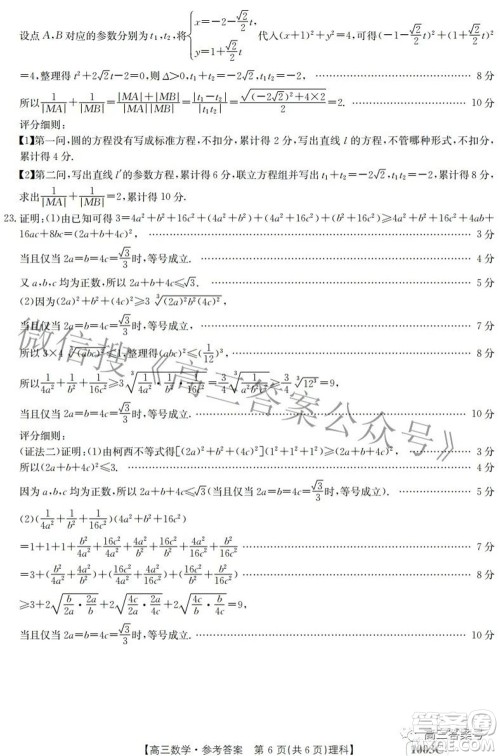 设点 A,B 对应的参数分别为 t₁,t₂,将 { x=-2-√2/2 t, y=1+√2/2 t 代入(x+1)²+y²=4,可得(-1-√2/2 t)²+(1+√2/2 t)²
=4,整理得 t²+2√2t-2=0,则 Δ>0,t₁+t₂=-2√2,t₁t₂=-2, 8 分
所以 1/|MA|+1/|MB|=(|MA|+|MB|)/(|MA||MB|)=|t₁-t₂|/|t₁t₂|=√((-2√2)²+4×2)/2=2. 10 分
评分细则:
【1】第一问,圆的方程没有写成标准方程,不扣分,累计得 2 分,写出直线 l 的方程,不管哪种形式,不扣分,累计得 4 分.
【2】第二问,写出直线 l′的参数方程,累计得 6 分,联立方程组并写出 t₁+t₂=-2√2,t₁t₂=-2,累计得 8 分,
求出 1/|MA|+1/|MB|=2,累计得 10 分.
23. 证明:(1)由已知可得 3=4a²+b²+16c²+(4a²+b²)+(4a²+16c²)+(b²+16c²)
16ac+8bc=(2a+b+4c)², 3 分
当且仅当 2a=b=4c=√3/3 时,等号成立. 4 分
又 a,b,c 均为正数,所以 2a+b+4c≤√3. 5 分
(2)因为(2a)²+b²+(4c)²≥3∛((2a)²b²(4c)²),
当且仅当 2a=b=4c=√3/3 时,等号成立. 7 分
所以 3×4∛((abc)²)≤1,整理得(abc)²≤(1/12)³, 8 分
所以 1/4a²+1/b²+1/16c²≥3∛(1/4a²·1/b²·1/16c²)=3/4∛(1/(abc)²)≥3/4∛(12³)=9,
当且仅当 2a=b=4c=√3/3 时,等号成立. 10 分
评分细则:
(证法二)证明:(1)由柯西不等式得[(2a)²+b²+(4c)²](1²+1²+1²)≥(2a+b+4c)², 3 分
所以(2a+b+4c)²≤3.
因为 a,b,c 均为正数,所以 2a+b+4c≤√3(当且仅当 2a=b=4c=√3/3 时,等号成立). 5 分
(2)(1/4a²+1/b²+1/16c²)(4a²+b²+16c²)
=1+1+1+b²/4a²+16c²/4a²+4a²/b²+16c²/b²+4a²/16c²+b²/16c² 7 分
=3+(b²/4a²+4a²/b²)+(16c²/4a²+4a²/16c²)+(16c²/b²+b²/16c²) 8 分
≥3+2√(b/2a·2a/b)+2√(4c/2a·2a/4c)+2√(4c/b·b/4c)=9,
当且仅当 2a=b=4c=√3/3 时,等号成立. 10 分
微信搜《高三答案公众号》
【高三数学·参考答案 第 6 页(共 6 页)理科】
高三答案号